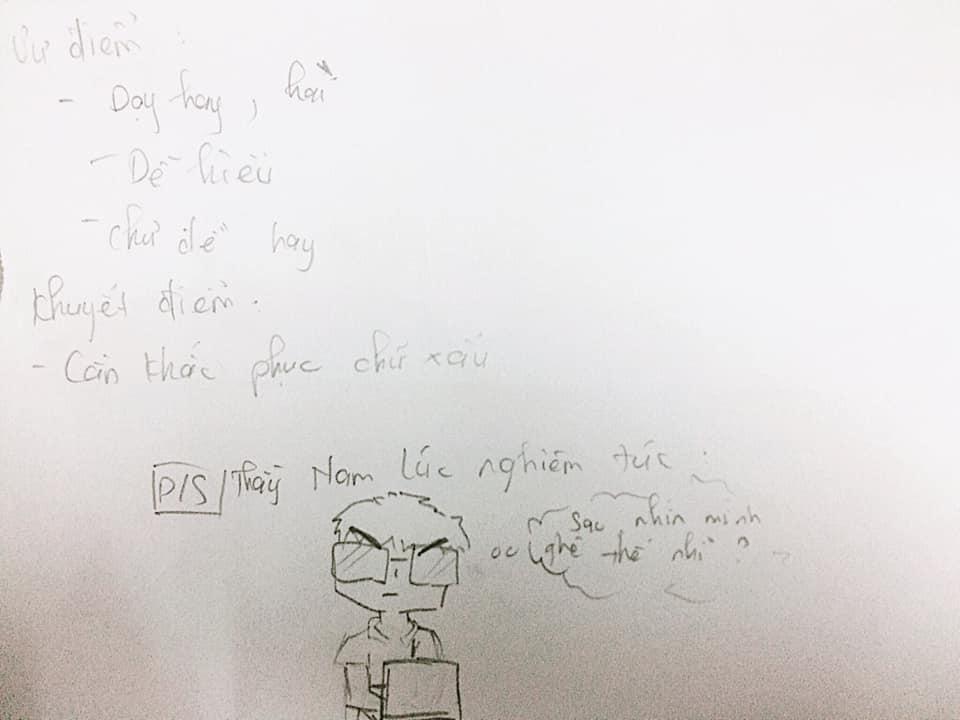 Ưu điểm :
- Dạy hay, hài
- Dễ hiểu
- chủ đề hay
Khuyết điểm :
- Cần khắc phục chữ xấu
P/S / Thầy Nam lúc nghiêm túc :
Sao nhìn mình
ghê thế nhỉ ?